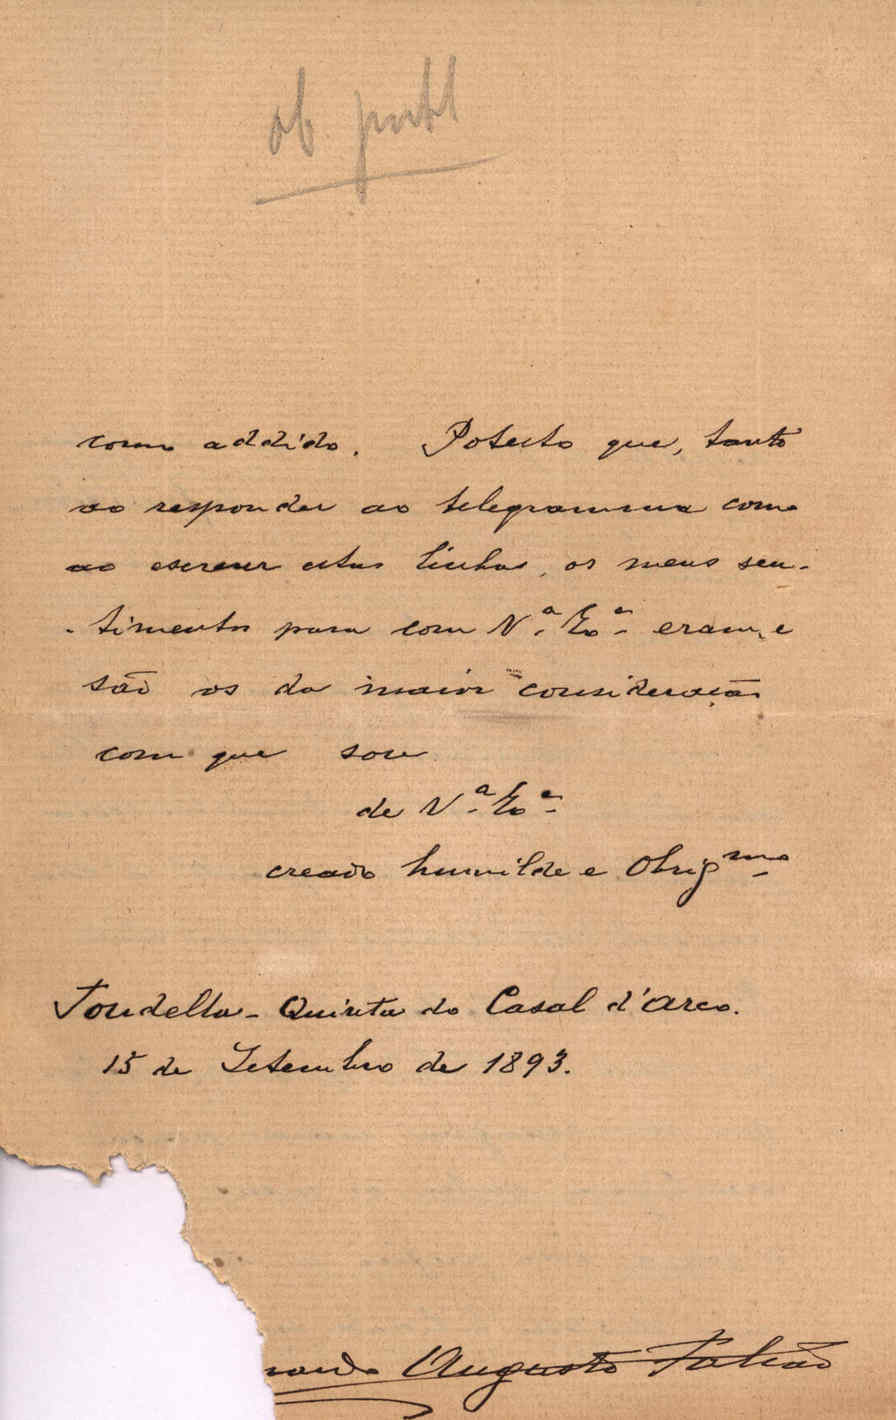 como addido. Potesto que, tanto
ao responder ao telegramma como
ao escrever estas linhas, os meus sen-
-timentos para com V.ª Ex.ª eram, e
são os da maior consideração
com que sou
de V.ª Ex.ª
creado humilde e Obrig.mo
Tondella - Quinta do Casal d'Arco.
15 de Setembro de 1893.
Augusto